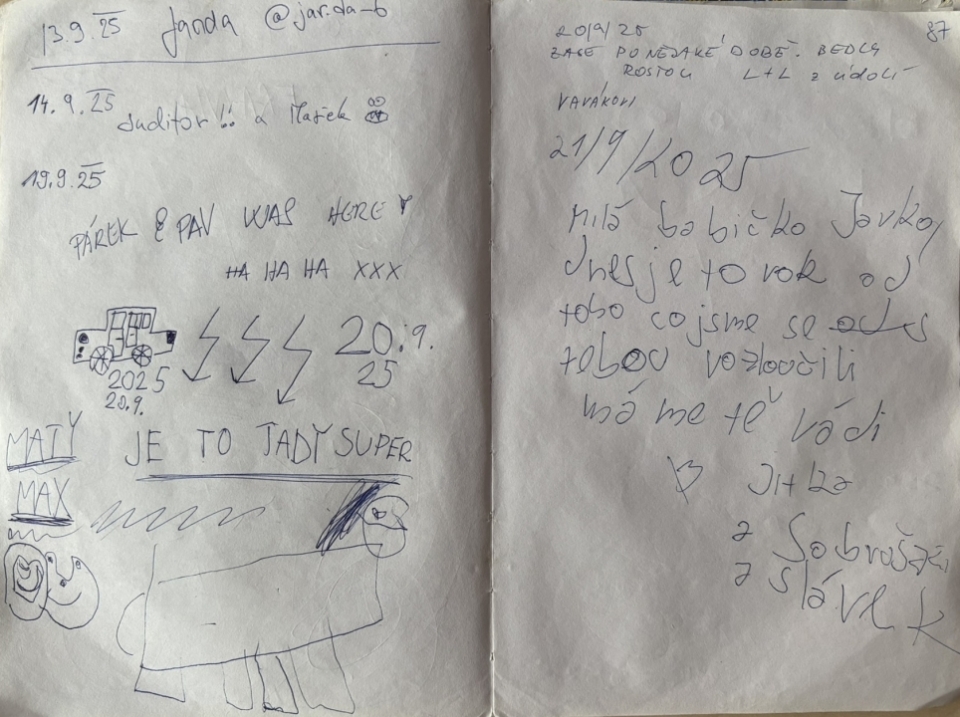 13.9.25 Janda @jar.da_b
14.9.25
Juditor !! a Mařek
19.9.25
PÁREK & PAV WAS HERE
HA HA HA XXX
20.9.
25
2025
20.9.
MATY JE TO TADY SUPER
MAX
87
20/9/25
ZASE PO NĚJAKÉ DOBĚ. BEDLY
ROSTOU L+L z údolí
VAVÁKOVI
21/9/2025
milá babičko Jarko,
dnes je to rok od
toho co jsme se s
tebou rozloučili
máme tě rádi
Jitka
a
a slávek